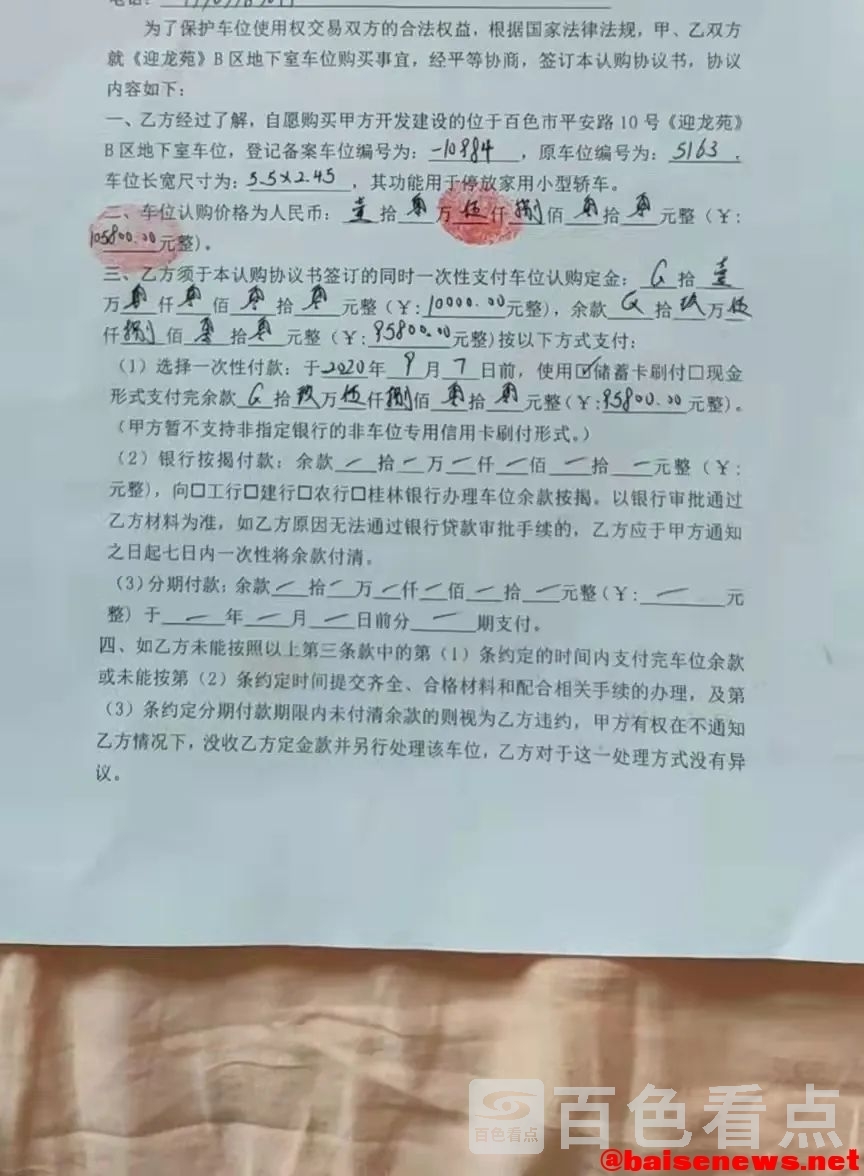 为了保护车位使用权交易双方的合法权益，根据国家法律法规，甲、乙双方
就《迎龙苑》B区地下室车位购买事宜，经平等协商，签订本认购协议书，协议
内容如下：
一、乙方经过了解，自愿购买甲方开发建设的位于百色市平安路10号《迎龙苑》
B区地下室车位，登记备案车位编号为：-10984，原车位编号为：5163，
车位长宽尺寸为：5.5×2.45，其功能用于停放家用小型轿车。
二、车位认购价格为人民币：壹拾零万伍仟捌佰零拾零元整（¥：
105800.00元整）。
三、乙方须于本认购协议书签订的同时一次性支付车位认购定金：拾壹
万零仟零佰零拾零元整（¥：10000.00元整），余款拾玖万伍
仟捌佰零拾零元整（¥：95800.00元整）按以下方式支付：
（1）选择一次性付款：于2020年9月7日前，使用☑储蓄卡刷付□现金
形式支付完余款拾玖万伍仟捌佰零拾零元整（¥：95800.00元整）。
（甲方暂不支持非指定银行的非车位专用信用卡刷付形式。）
（2）银行按揭付款：余款／拾／万／仟／佰／拾／元整（¥：
元整），向□工行□建行□农行□桂林银行办理车位余款按揭。以银行审批通过
乙方材料为准，如乙方原因无法通过银行贷款审批手续的，乙方应于甲方通知
之日起七日内一次性将余款付清。
（3）分期付款：余款／拾／万／仟／佰／拾／元整（¥：／元
整）于／年／月／日前分／期支付。
四、如乙方未能按照以上第三条款中的第（1）条约定的时间内支付完车位余款
或未能按第（2）条约定时间提交齐全、合格材料和配合相关手续的办理，及第
（3）条约定分期付款期限内未付清余款的则视为乙方违约，甲方有权在不通知
乙方情况下，没收乙方定金款并另行处理该车位，乙方对于这一处理方式没有异
议。
百色看点
百色看点
@baisenews.net